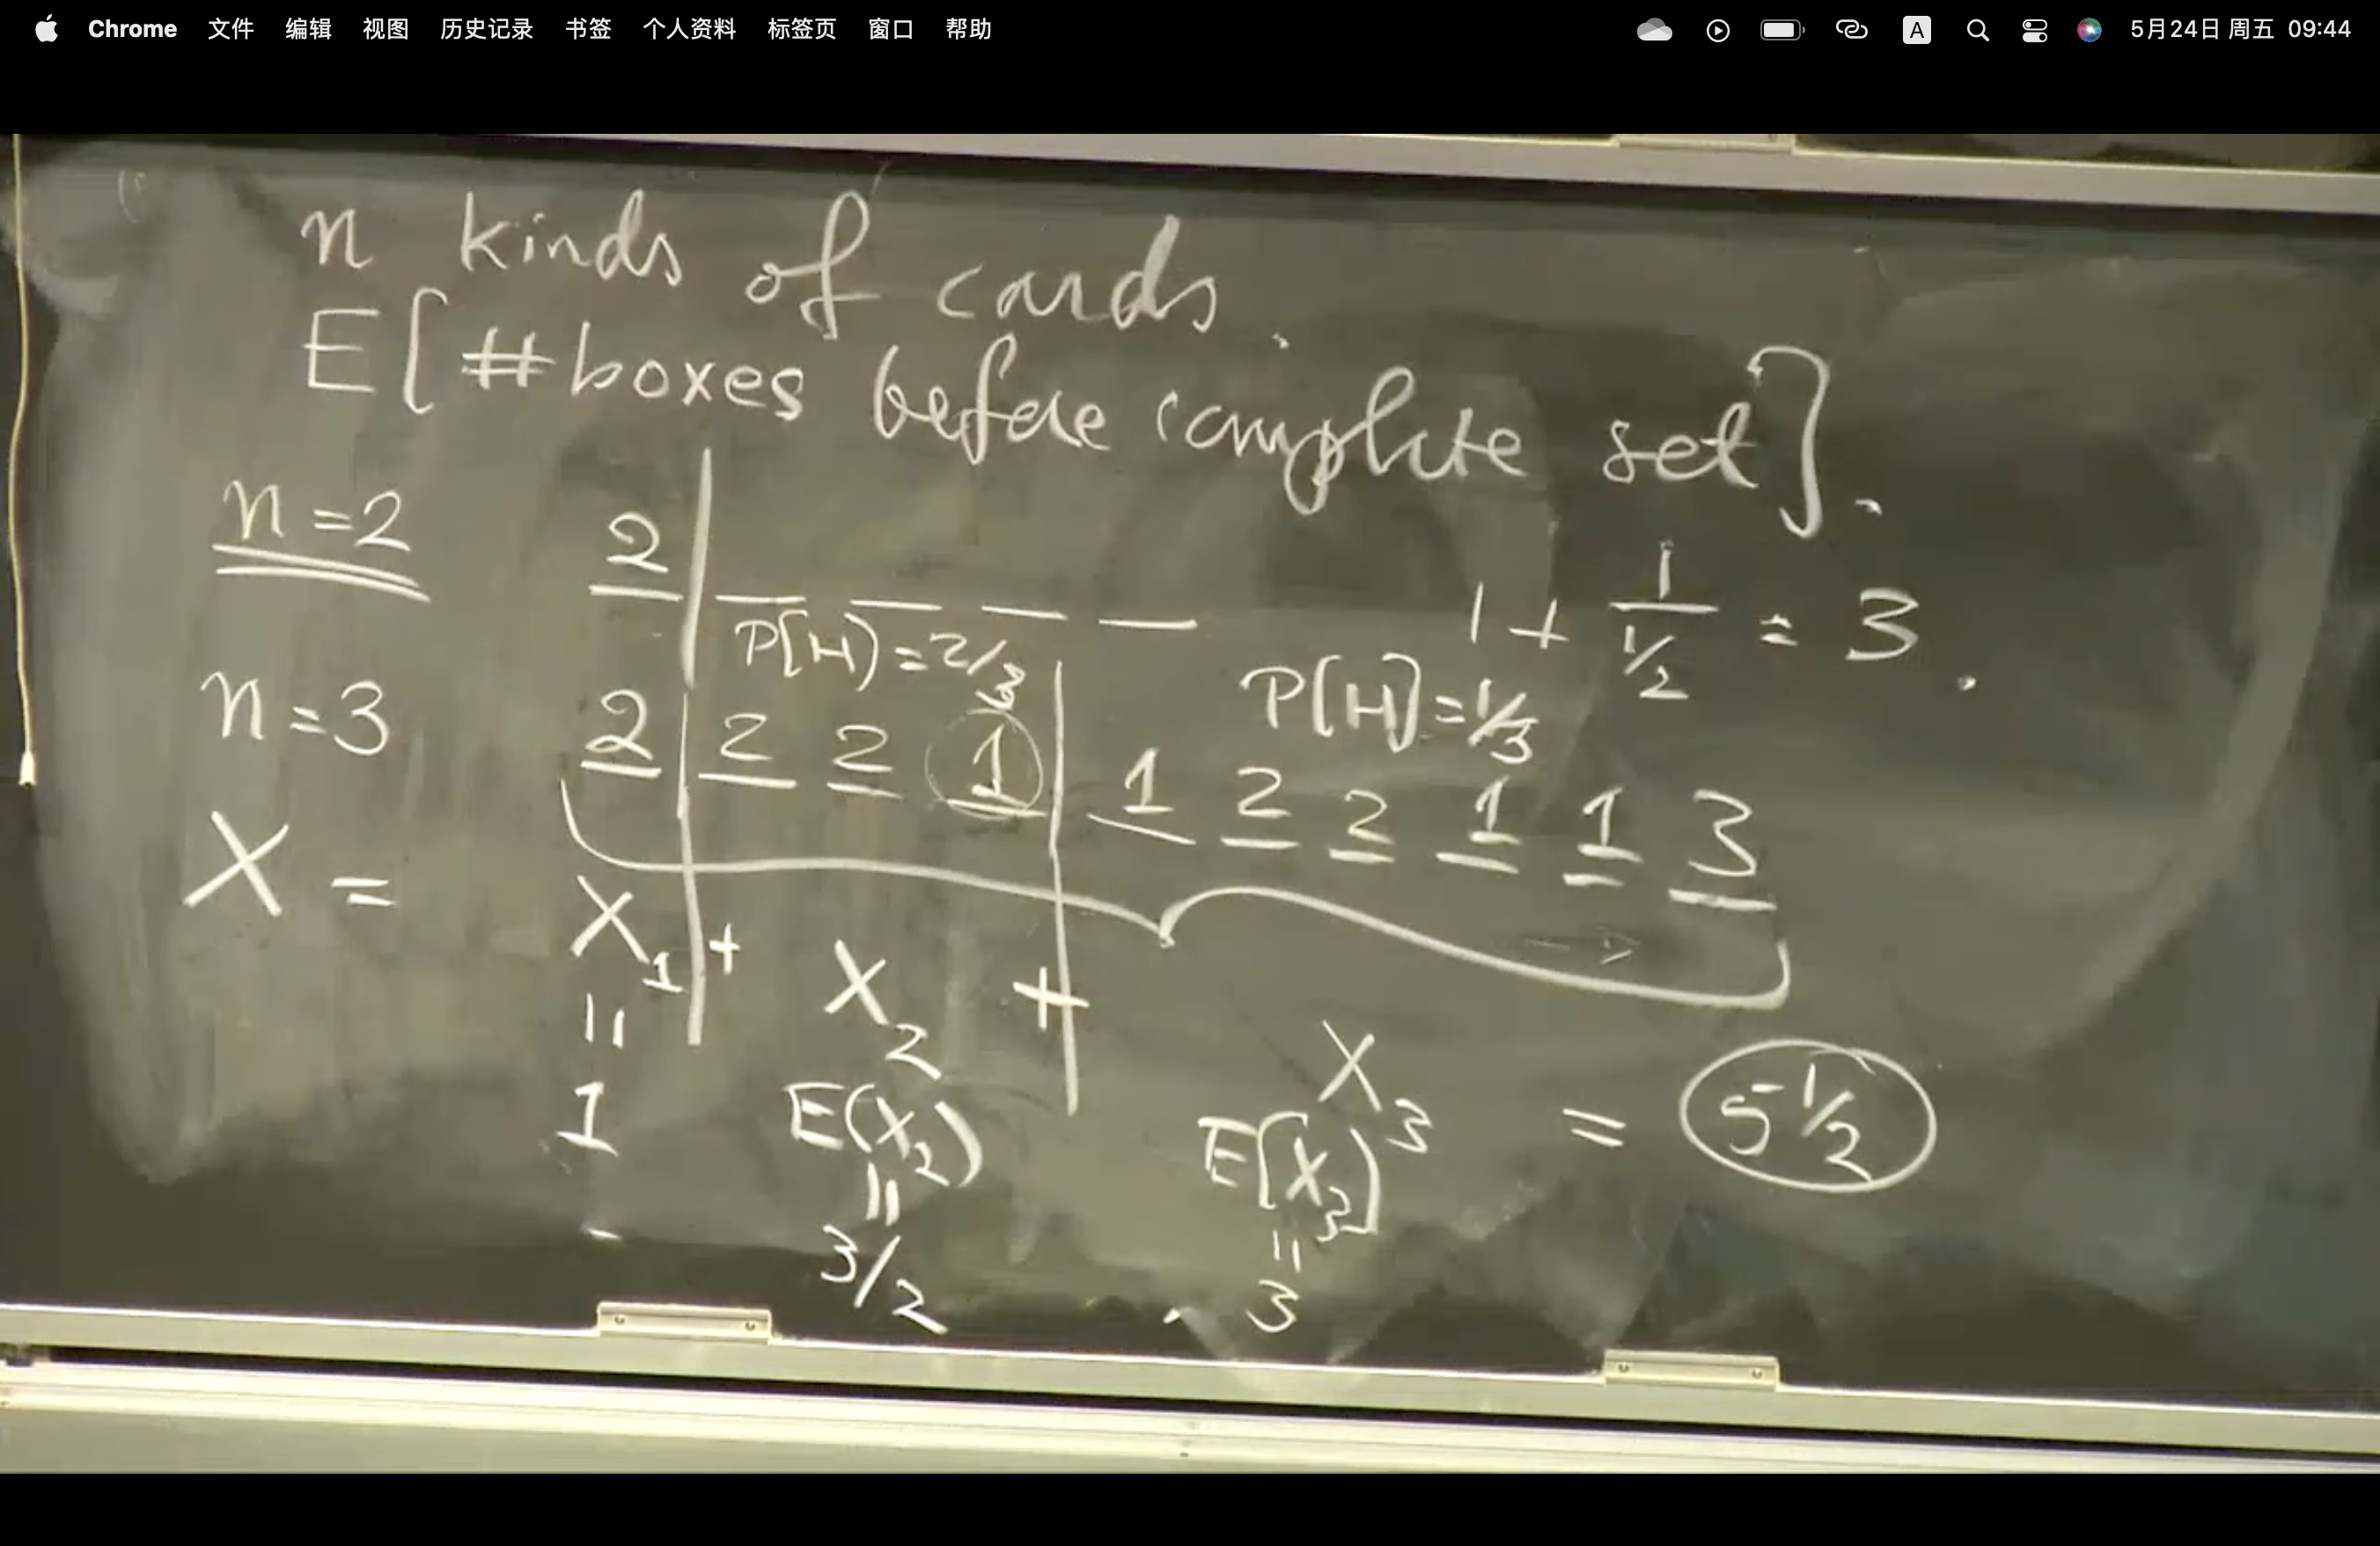 Chrome 文件 编辑 视图 历史记录 书签 个人资料 标签页 窗口 帮助 A 5月24日 周五 09:44
n kinds of cards.
E[#boxes before complete set].
n=2 2 1 + 1/(1/2) = 3.
P[H]=2/3 P[H]=1/3
n=3 2 2 2 1 1 2 2 1 1 3
X = X₁ + X₂ + X₃
= 1 E(X₂) = 3/2 E[X₃] = 3 = 5 1/2